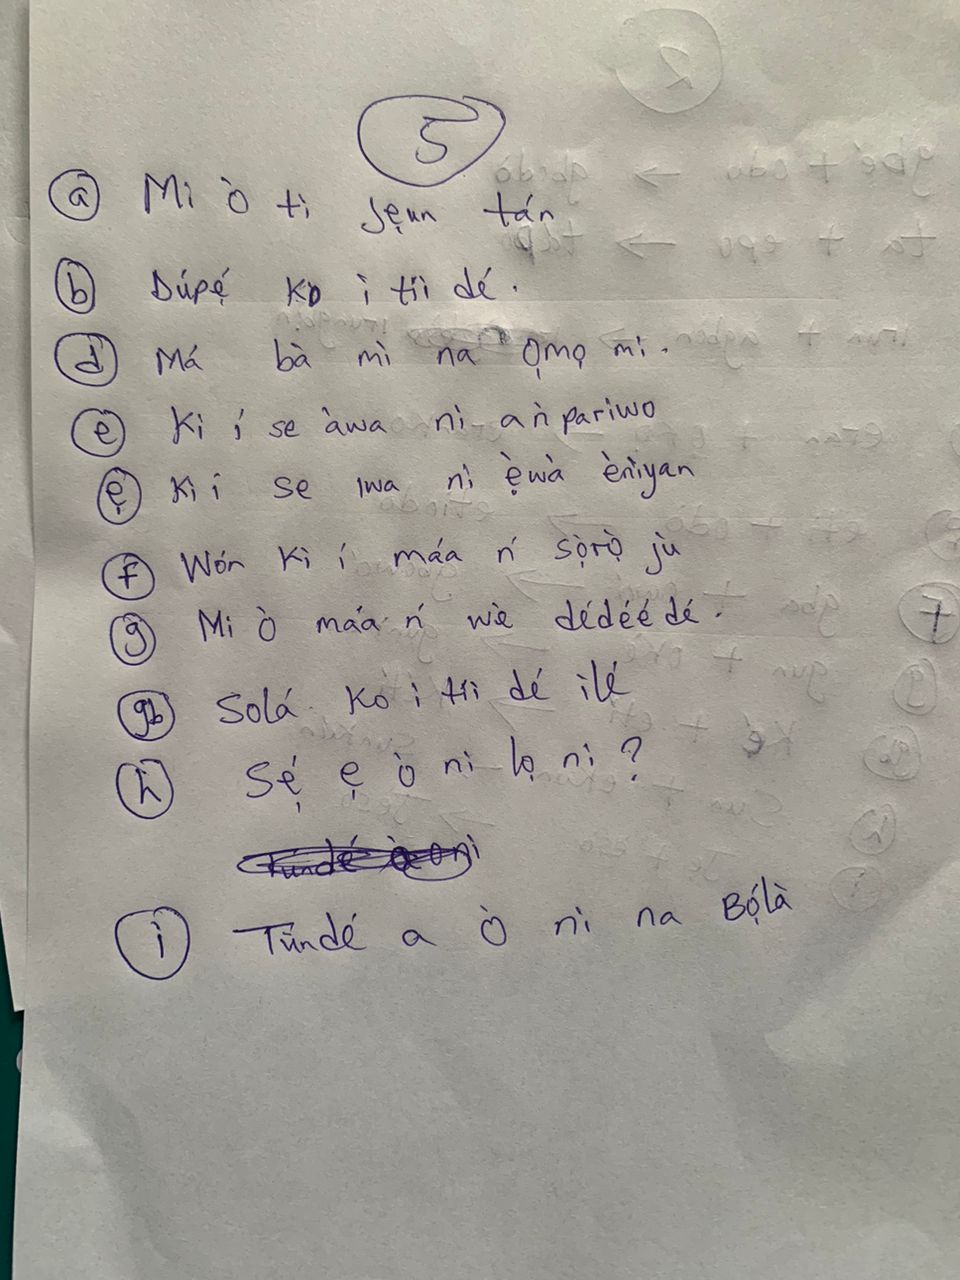 5
a Mi ò tì Jẹun tán
b Dúpẹ́ kò ì tíì dé.
d Má bà mì na ọmọ mi.
e Kì í se àwa nì aǹpariwo
ẹ Kì í se ìwa nì ẹ̀wà ènìyan
f Wón Kì í máa ń sọ̀rọ̀ jù
g Mi ò máa ń wè dédéé dé.
gb Solá kò ì tíì dé ilé
h Sẹ́ ẹ ò nì lọ nì?
i Túndé a ò nì na Bọ́là